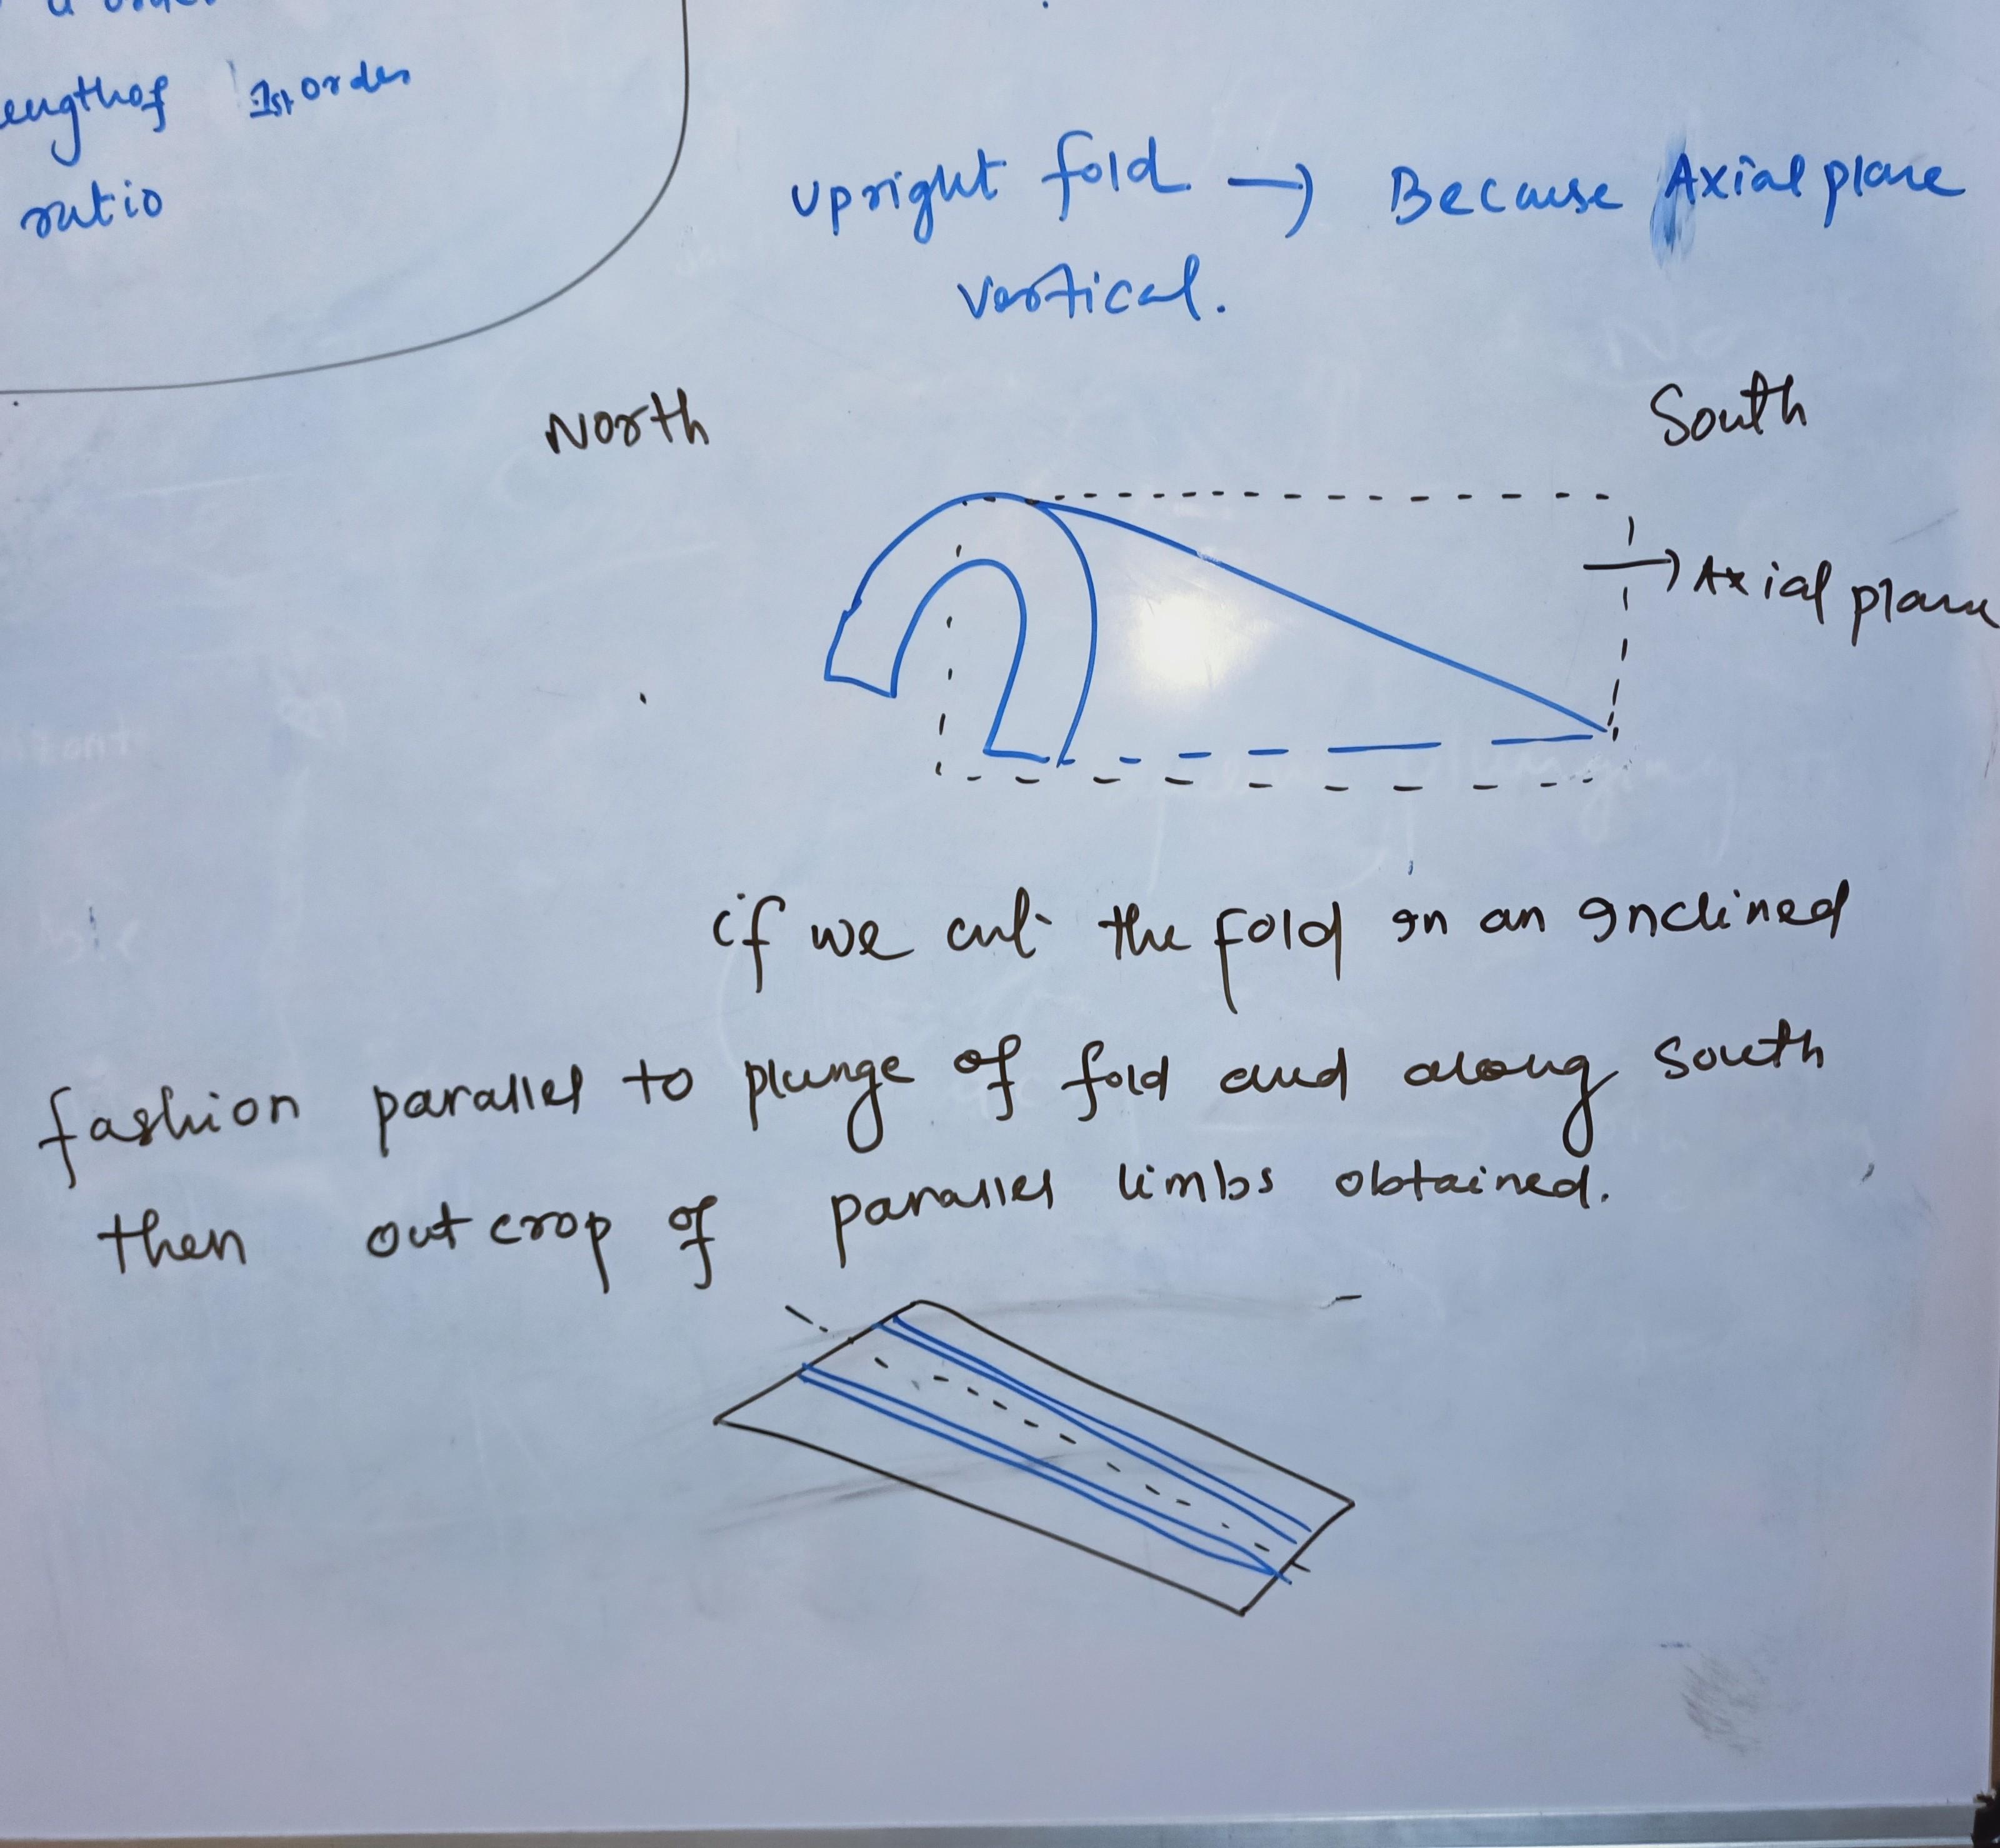 1st order
ratio
upright fold → Because Axial plane
vertical.
North
South
→ Axial plane
if we cut the fold in an inclined
fashion parallel to plunge of fold and along south
then outcrop of parallel limbs obtained.